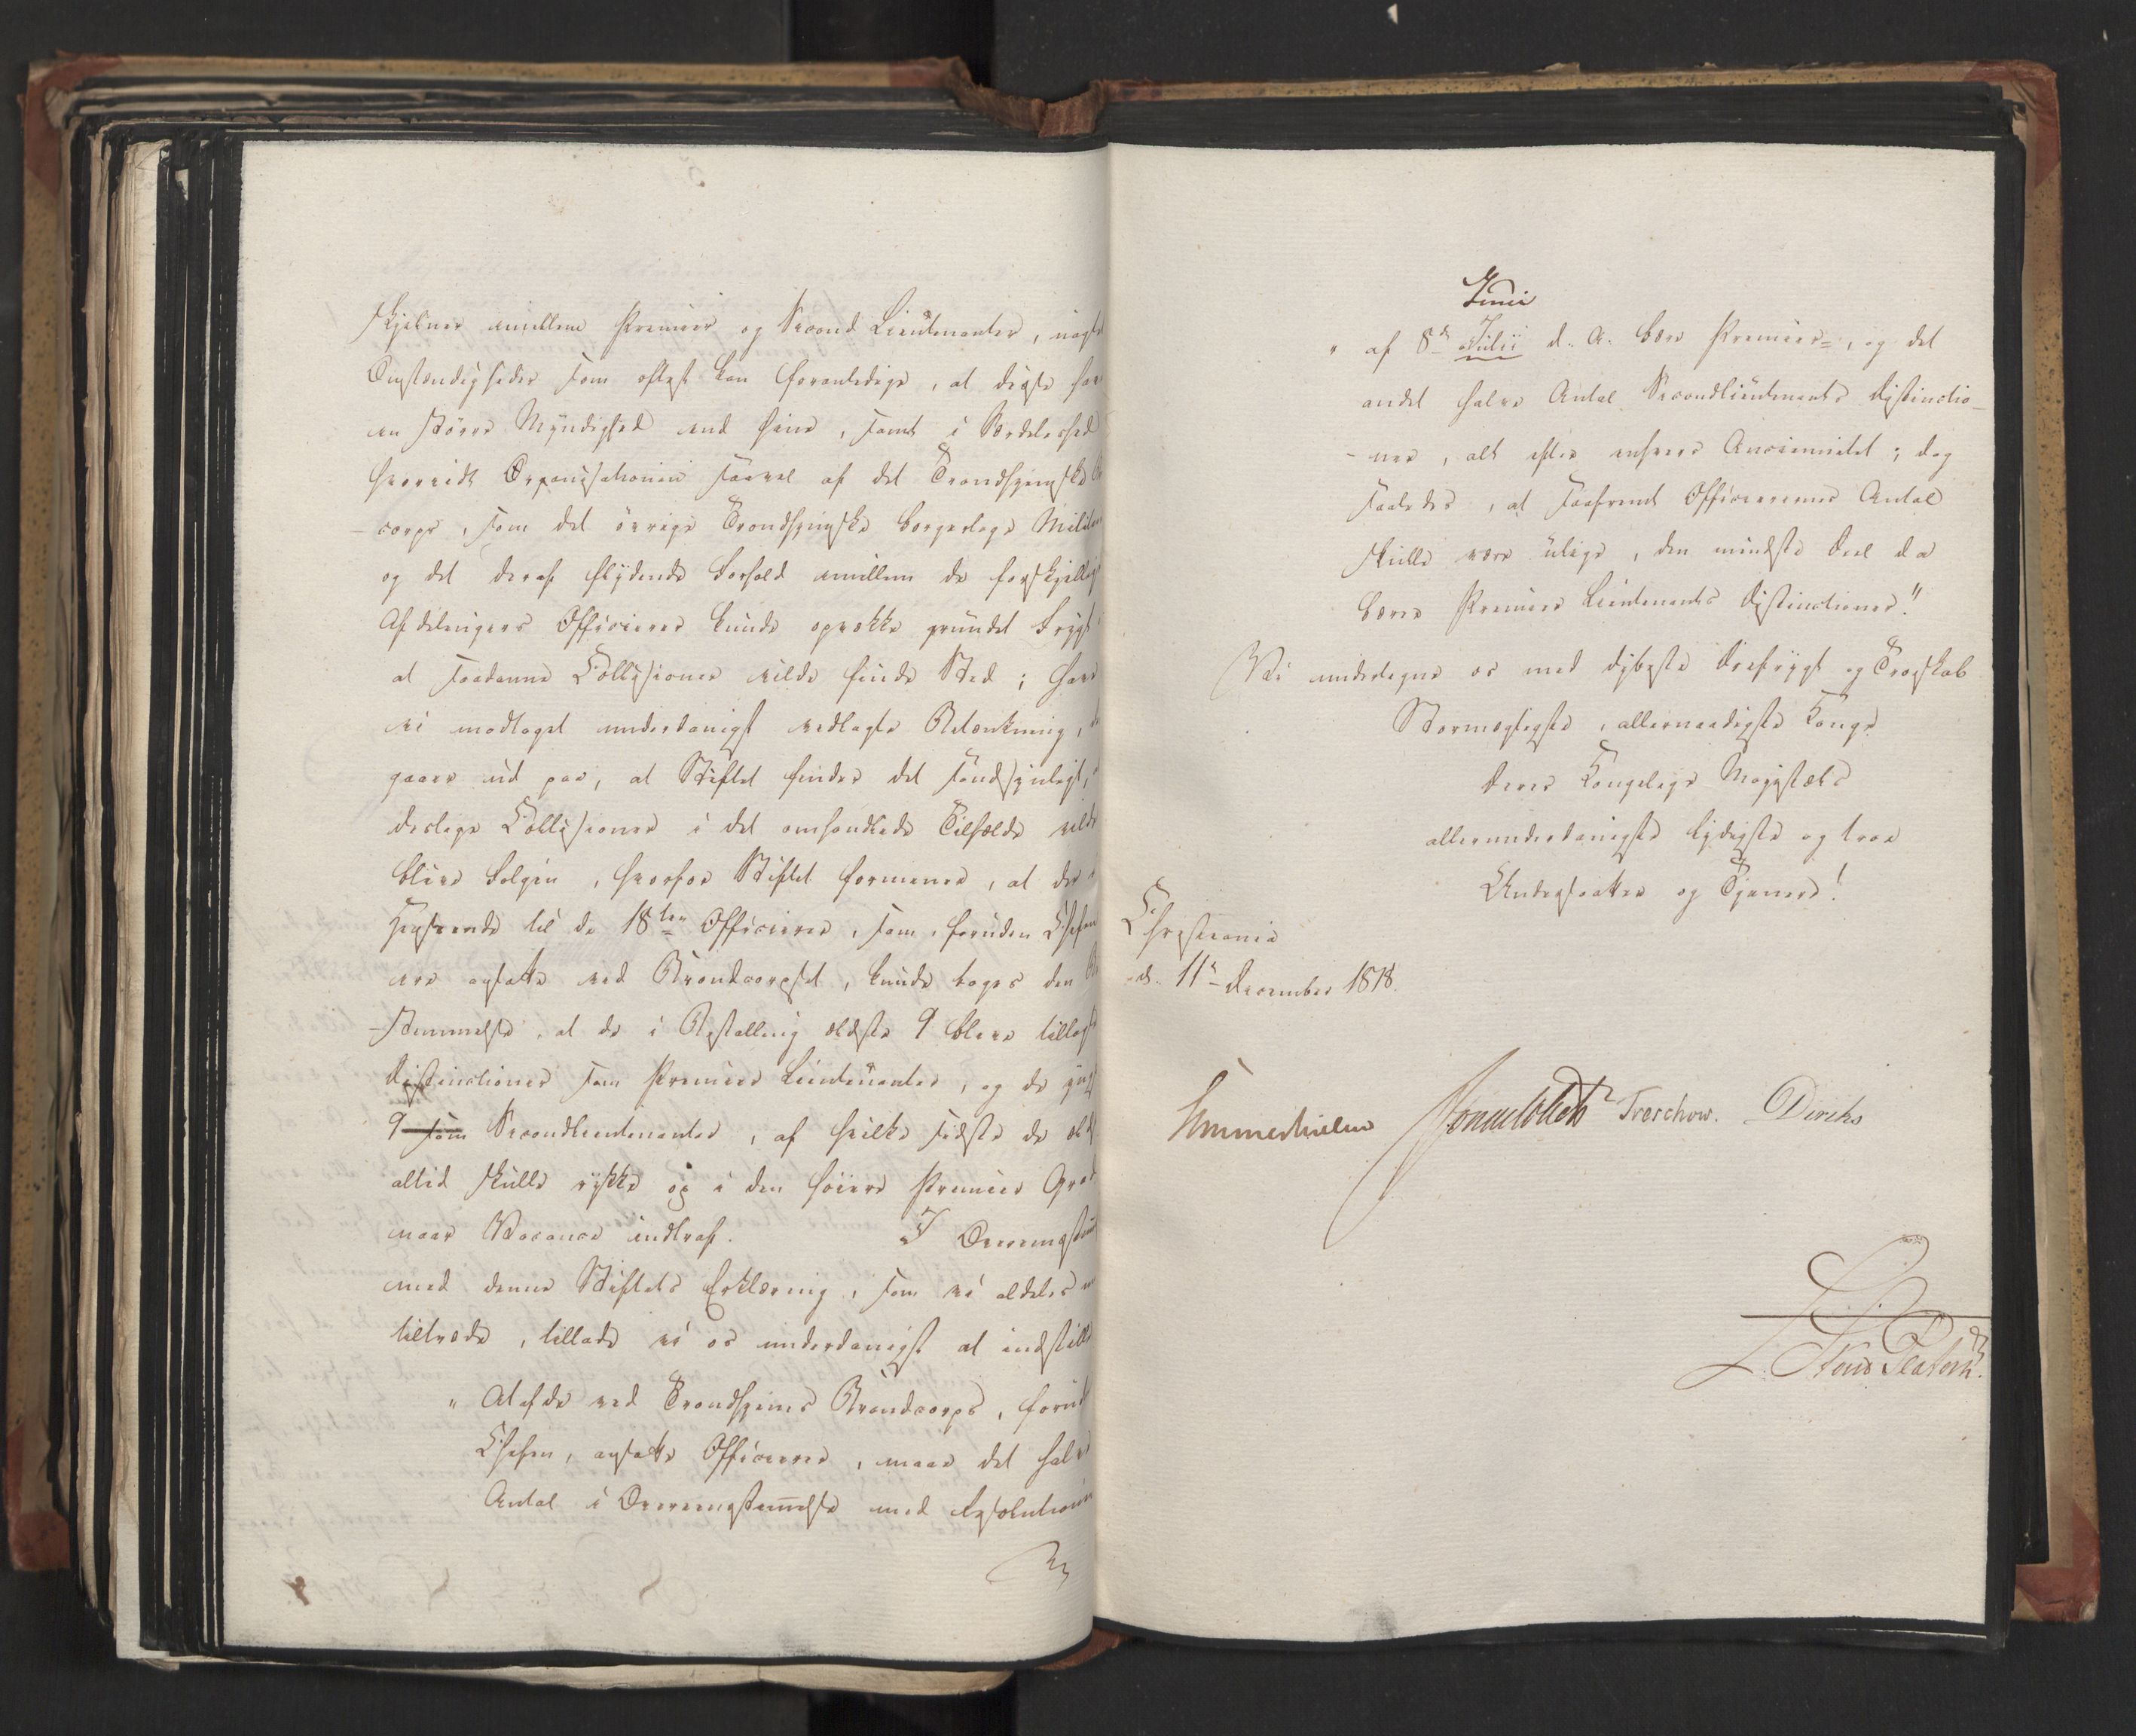 skjelner imellem Premier og Second Lieutenanter,
Omstændigheder som oftest kan foranledige, at disse have
en større Myndighed end hine, samt i Særdeleshed
hvorvidt Organisationen saavel af det Trondhjemske
corps, som det øvrige Trondhjemske borgerlige Militær
og det deraf flydende Forhold imellem de forskjellige
Afdelingers Officierer kunde opvække grundet Frygt,
at saadanne Collisioner vilde finde Sted; have
vi modtaget underdanigst vedlagte Betænkning,
gaaer ud paa, at Stiftet finder det sandsynligt,
deslige Collisioner i det omhandlede Tilfælde vilde
blive Følgen, hvorfor Stiftet formener, at der i
Henseende til de 18ten Officierer, som, foruden Chefen
ere ansatte ved Brandcorpset, kunde tages den Be
-stemmelse, at de i Bestalling ældste 9 bleve tillagt
Distinctioner som Premier Lieutenanter, og de yngste
9 som Secondlieutenanter, af hvilke sidste de ældste
altid skulle rykke op i den høiere Premier Grad
naar Vacance indtraf. I Overeenstem
med denne Stiftets Erklæring, som vi aldeles
tiltræde, tillade vi os underdanigst at indstille
" At af de ved Trondhjems Brandcorps, foruden
Chefen, ansatte Officierer, maae det halve
Antal i Overeenstemmelse med Resolutionen
Junii
" af 8de Julii d. A. bære Premier=, og det
andet halve Antal Secondlieutenants Distinctio-
-ner, alt efter enhvers Anciennitet; dog
saaledes, at saafremt Officierernes Antal
skulle være ulige, den mindste Deel da
bærer Premier Lieutenants Distinctioner."
Vi undertegne os med dybeste Ærefrygt og Troskab
Stormægtigste, allernaadigste Konge
Deres Kongelige Majestæts
allerunderdanigste lydigste og troe
Undersaatter og Tjenere!
Christiania
d. 11te December 1818.
Sommerhielm Treschow. Diriks